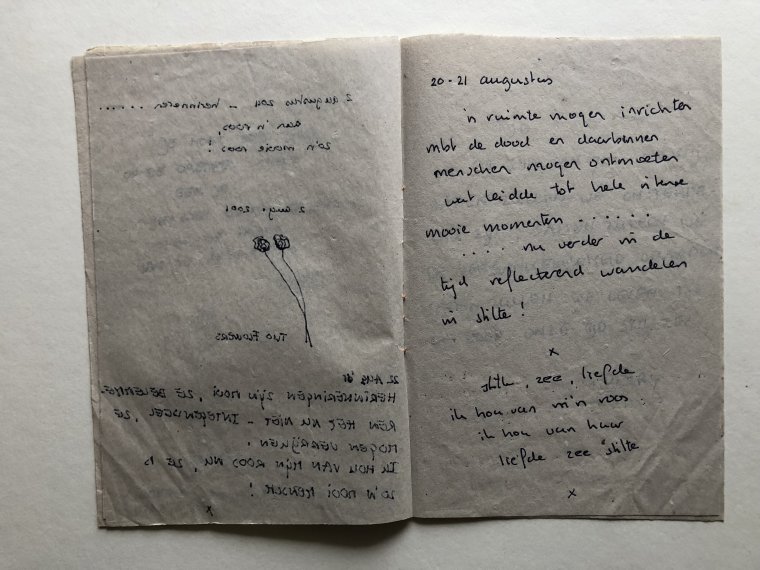 2 augustus 2011 - herinneren ......
aan 'n roos,
zo'n mooie roos!
2 aug. 2001
TWO FLOWERS
22 AUG '11
HERINNERINGEN ZIJN MOOI, ZE BELEMME-
REN HET NU NIET - INTEGENDEEL, ZE
MOGEN VERRIJKEN.
IK HOU VAN MIJN ROOS NU, ZE IS
ZO'N MOOI MENSCH!
x
20-21 augustus
'n ruimte mogen inrichten
mbt de dood en daarbinnen
menschen mogen ontmoeten
wat leidde tot hele intense
mooie momenten ......
.... nu verder in de
tijd reflecterend wandelen
in stilte!
x
stilte, zee, liefde
ik hou van m'n roos
ik hou van haar
liefde zee stilte
x